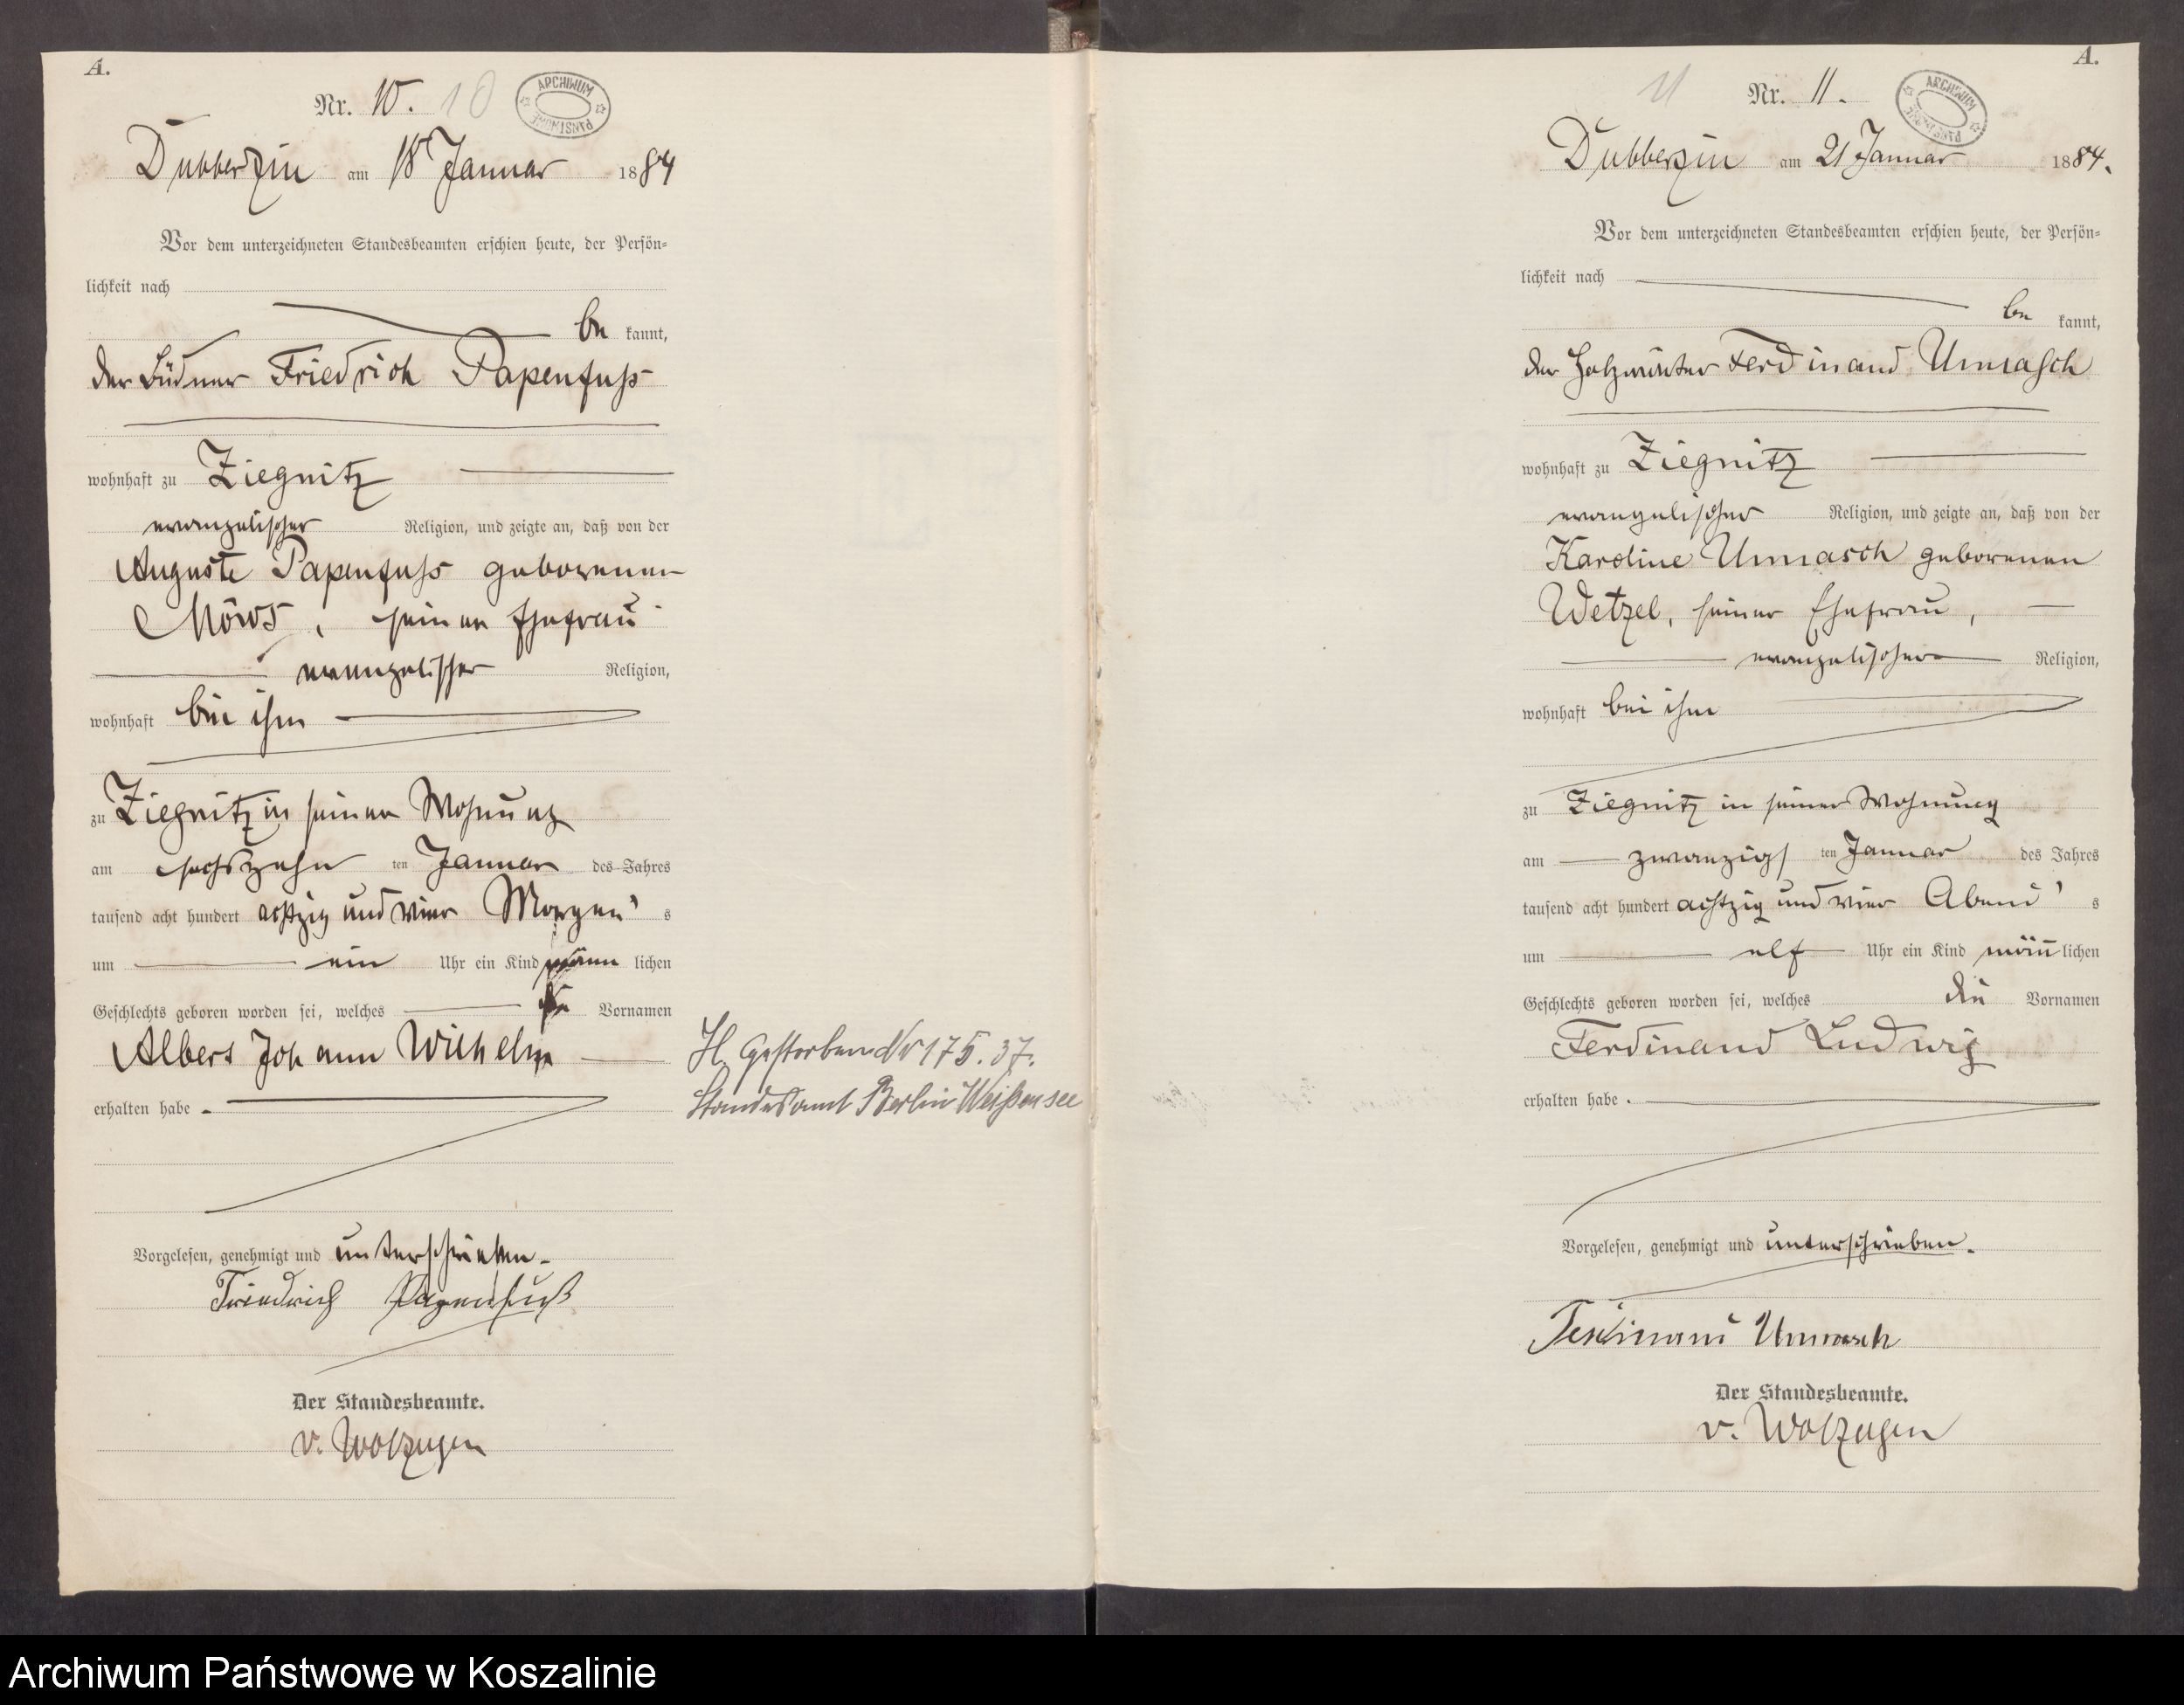 A.
Nr. 10. 10
ARCHIWUM PAŃSTWOWE
Dubberzin am 18 Januar 1884
Vor dem unterzeichneten Standesbeamten erschien heute, der Persön-
lichkeit nach
be kannt,
der Büdner Friedrich Papenfuss
wohnhaft zu Ziegnitz
evangelischer Religion, und zeigte an, daß von der
Auguste Papenfuss geborenen
Möws, seiner Ehefrau
evangelischer Religion,
wohnhaft bei ihm
zu Ziegnitz in seiner Wohnung
am sechszehn ten Januar des Jahres
tausend acht hundert achtzig und vier Morgen's
um ein Uhr ein Kind männ lichen
Geschlechts geboren worden sei, welches die Vornamen
Albert Johann Wilhelm
erhalten habe.
Vorgelesen, genehmigt und unterschrieben.
Friedrich Papenfuß
Der Standesbeamte.
v. Wolzogen
H. Gestorben Nr 175. 37.
Standesamt Berlin Weißensee
A.
11 Nr. 11.
ARCHIWUM PAŃSTWOWE
Dubberzin am 21 Januar 1884.
Vor dem unterzeichneten Standesbeamten erschien heute, der Persön-
lichkeit nach
be kannt,
der Holzwärter Ferdinand Unrasch
wohnhaft zu Ziegnitz
evangelischer Religion, und zeigte an, daß von der
Karoline Unrasch geborenen
Wetzel, seiner Ehefrau,
evangelischer Religion,
wohnhaft bei ihm
zu Ziegnitz in seiner Wohnung
am zwanzigs ten Januar des Jahres
tausend acht hundert achtzig und vier Abend's
um elf Uhr ein Kind männlichen
Geschlechts geboren worden sei, welches die Vornamen
Ferdinand Ludwig
erhalten habe.
Vorgelesen, genehmigt und unterschrieben.
Ferdinand Unrasch
Der Standesbeamte.
v. Wolzogen
Archiwum Państwowe w Koszalinie